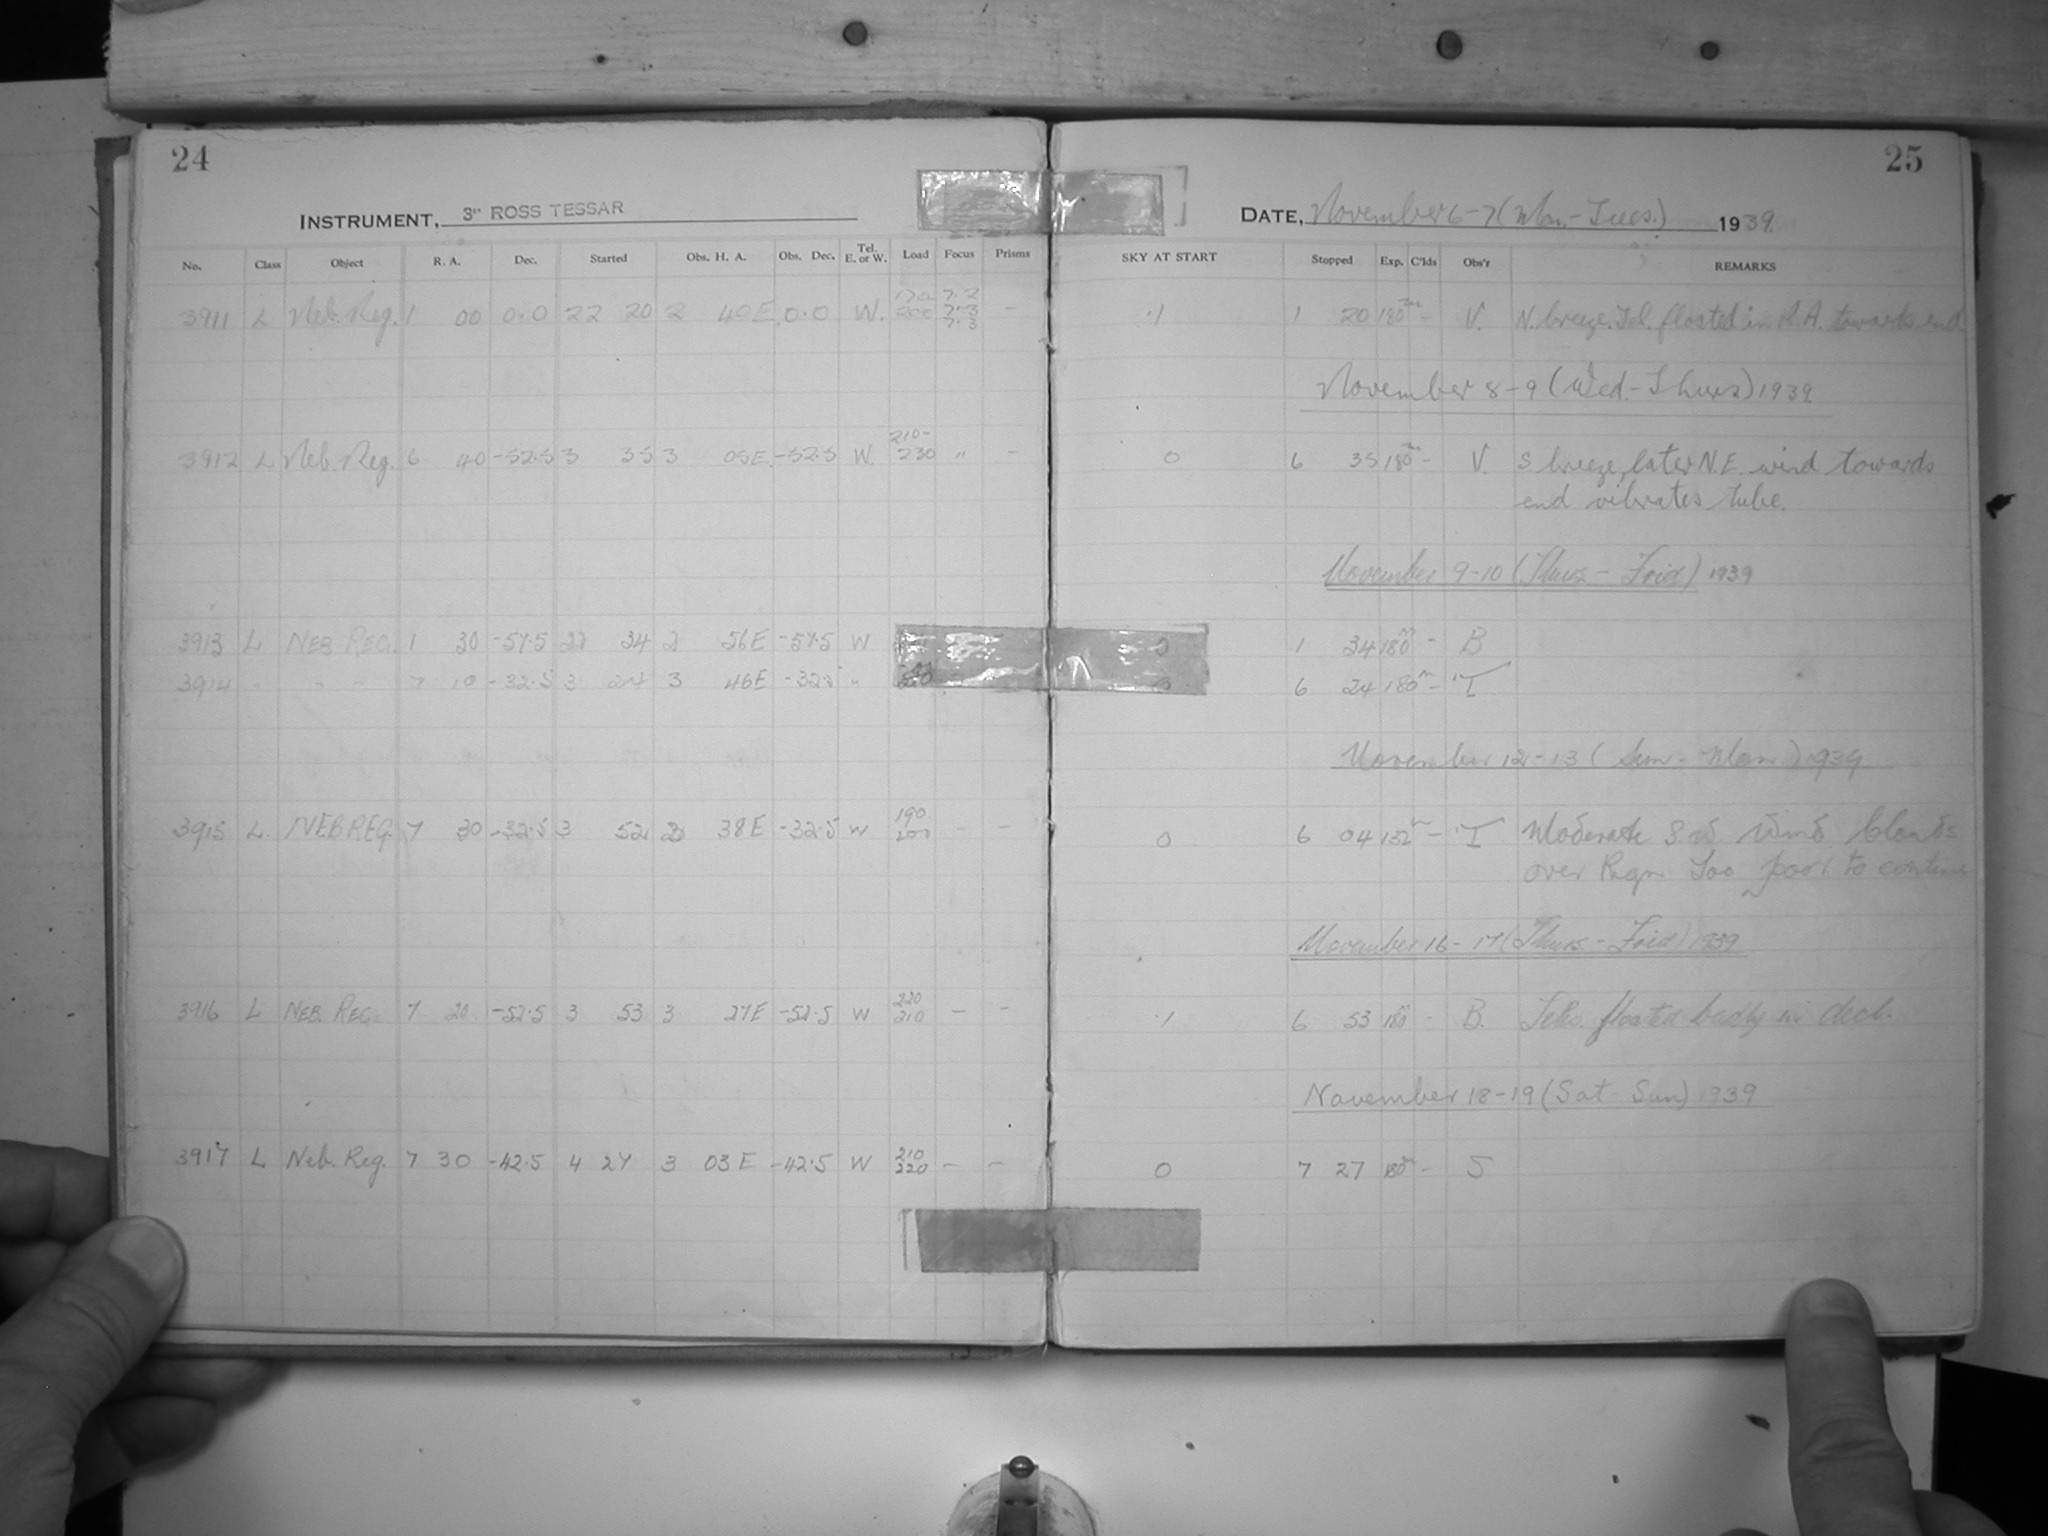 24
INSTRUMENT, 3" ROSS TESSAR
No. Class Object R. A. Dec. Started Obs. H. A. Obs. Dec. Tel. E. or W. Load Focus Prisms
3911 L Neb. Reg. 1 00 0.0 22 20 2 40E 0.0 W. 200 7.2 7.3 7.3 –
3912 L Neb. Reg. 6 40 -52.5 3 35 3 05E -52.5 W 210- 230 " –
3913 L NEB REG. 1 30 -57.5 22 34 2 56E -57.5 W
3914 - - - 7 10 -32.5 3 24 3 46E -32.5 "
3915 L. NEB REG. 7 30 -32.5 3 52 38E -32.5 W 190 200 – –
3916 L NEB. REG. 7 20 -52.5 3 53 3 27E -52.5 W 220 210 – –
3917 L Neb. Reg. 7 30 -42.5 4 27 3 03E -42.5 W 210 220 – –
25
DATE, November 6-7 (Mon.-Tues.) 1939.
SKY AT START Stopped Exp. C'lds Obs'r REMARKS
.1 1 20 180 – V. N. breeze. Tel. floated in R.A. towards end
November 8-9 (Wed.-Thurs) 1939.
0 6 35 180 – V. S breeze, later N.E. wind towards
end vibrates tube.
November 9-10 (Thurs. - Frid) 1939
0 1 34 180m - B
0 6 24 180m – T
November 12-13 (Sun - Mon) 1939
0 6 04 132m – T Moderate S.W. Wind Clouds
over Regn. Too poor to continue
November 16-17 (Thurs. - Frid) 1939
.1 6 53 180m - B. Tele. floated badly in decl.
November 18-19 (Sat - Sun) 1939
0 7 27 180m – S